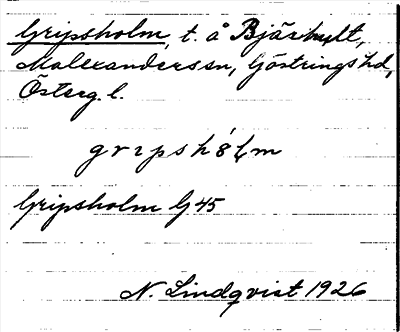 Gripsholm, t. å Bjärhult,
Malexanders sn, Göstrings hd,
Österg. l.
Gripsholm G 45
N. Lindqvist 1926